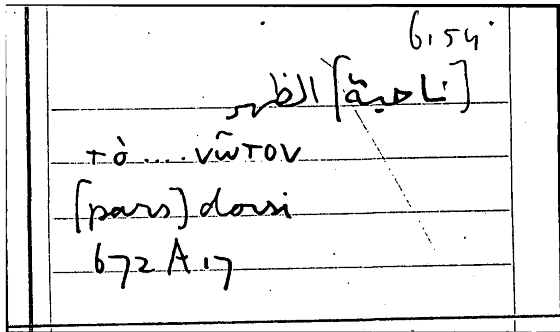 6.54
[ناحية] الظهر
τὸ .... νῶτον
[pars] dorsi
672 A 17